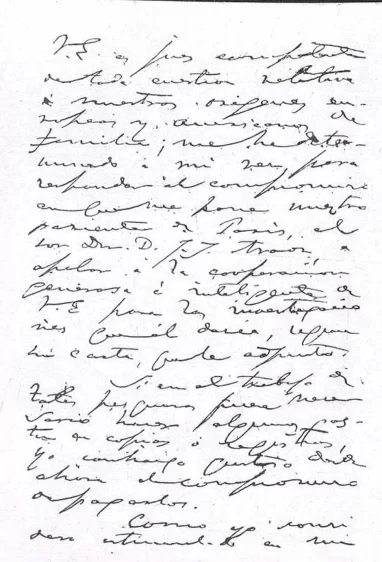 V. E. es juez competente
de toda cuestion relativa
á nuestros orígenes eu-
ropeos y americanos de
familia; me he deter-
minado á mi vez para
responder al compromiso
en que me pone nuestro
pariente de Paris, el
Dr. D. J. J.
apelar á la cooperacion
generosa é inteligente de
V. E. para las investigacio
nes que él desea, segun
su carta, que le adjunto.
Si en el trabajo de
tales pesquisas fuera nece
sario hacer algunos gas-
tos en copias ó registros,
yo contraigo gustoso desde
ahora el compromiso
de pagarlos.
Como yo consi
dero en mi